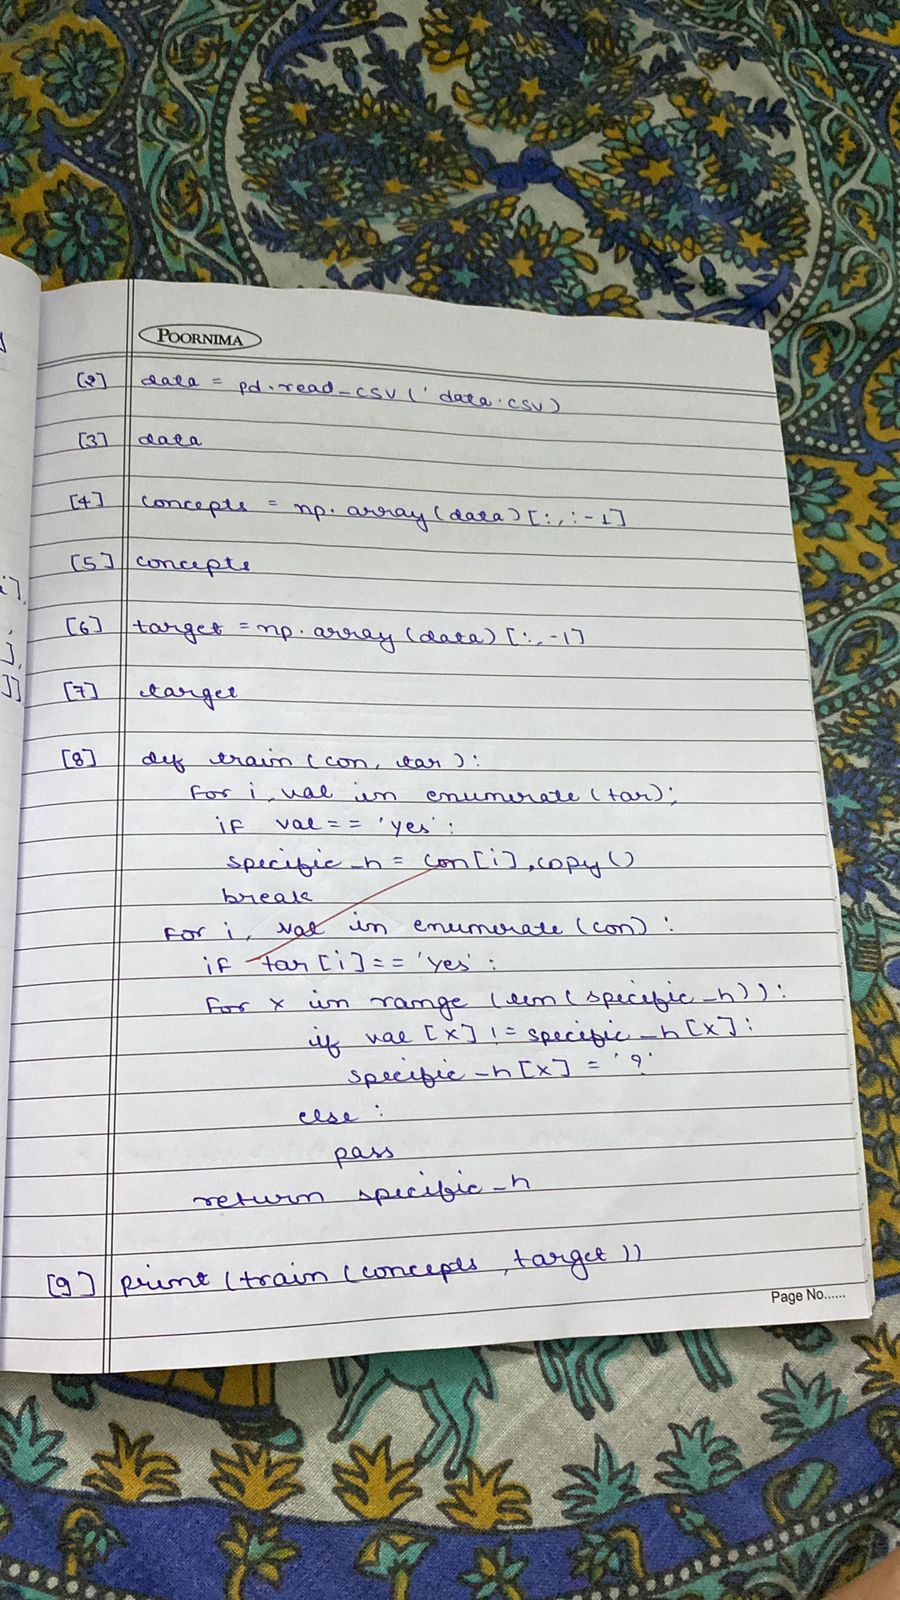 POORNIMA
[2] data = pd.read_csv('data.csv)
[3] data
[4] concepts = np.array(data)[:,:-1]
[5] concepts
[6] target = np.array(data)[:,-1]
[7] target
[8] def train(con, tar):
for i, val in enumerate(tar):
if val == 'yes':
specific_h = con[i].copy()
break
for i, val in enumerate(con):
if tar[i] == 'yes':
for x in range (len(specific_h)):
if val[x] != specific_h[x]:
specific_h[x] = '?'
else:
pass
return specific_h
[9] print(train(concepts, target))
Page No......